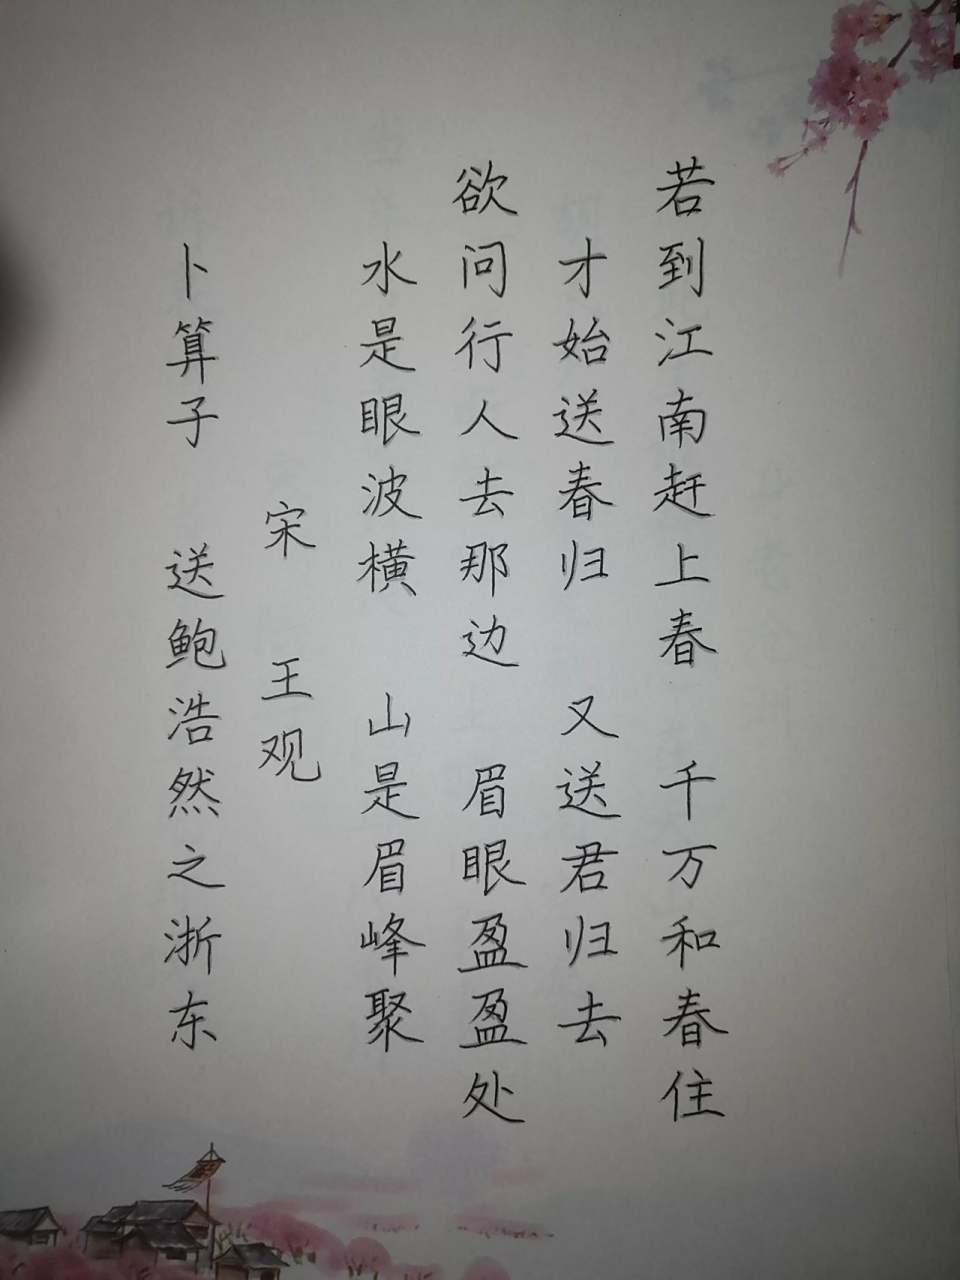 卜算子 送鲍浩然之浙东
宋 王观
水是眼波横 山是眉峰聚
欲问行人去那边 眉眼盈盈处
才始送春归 又送君归去
若到江南赶上春 千万和春住